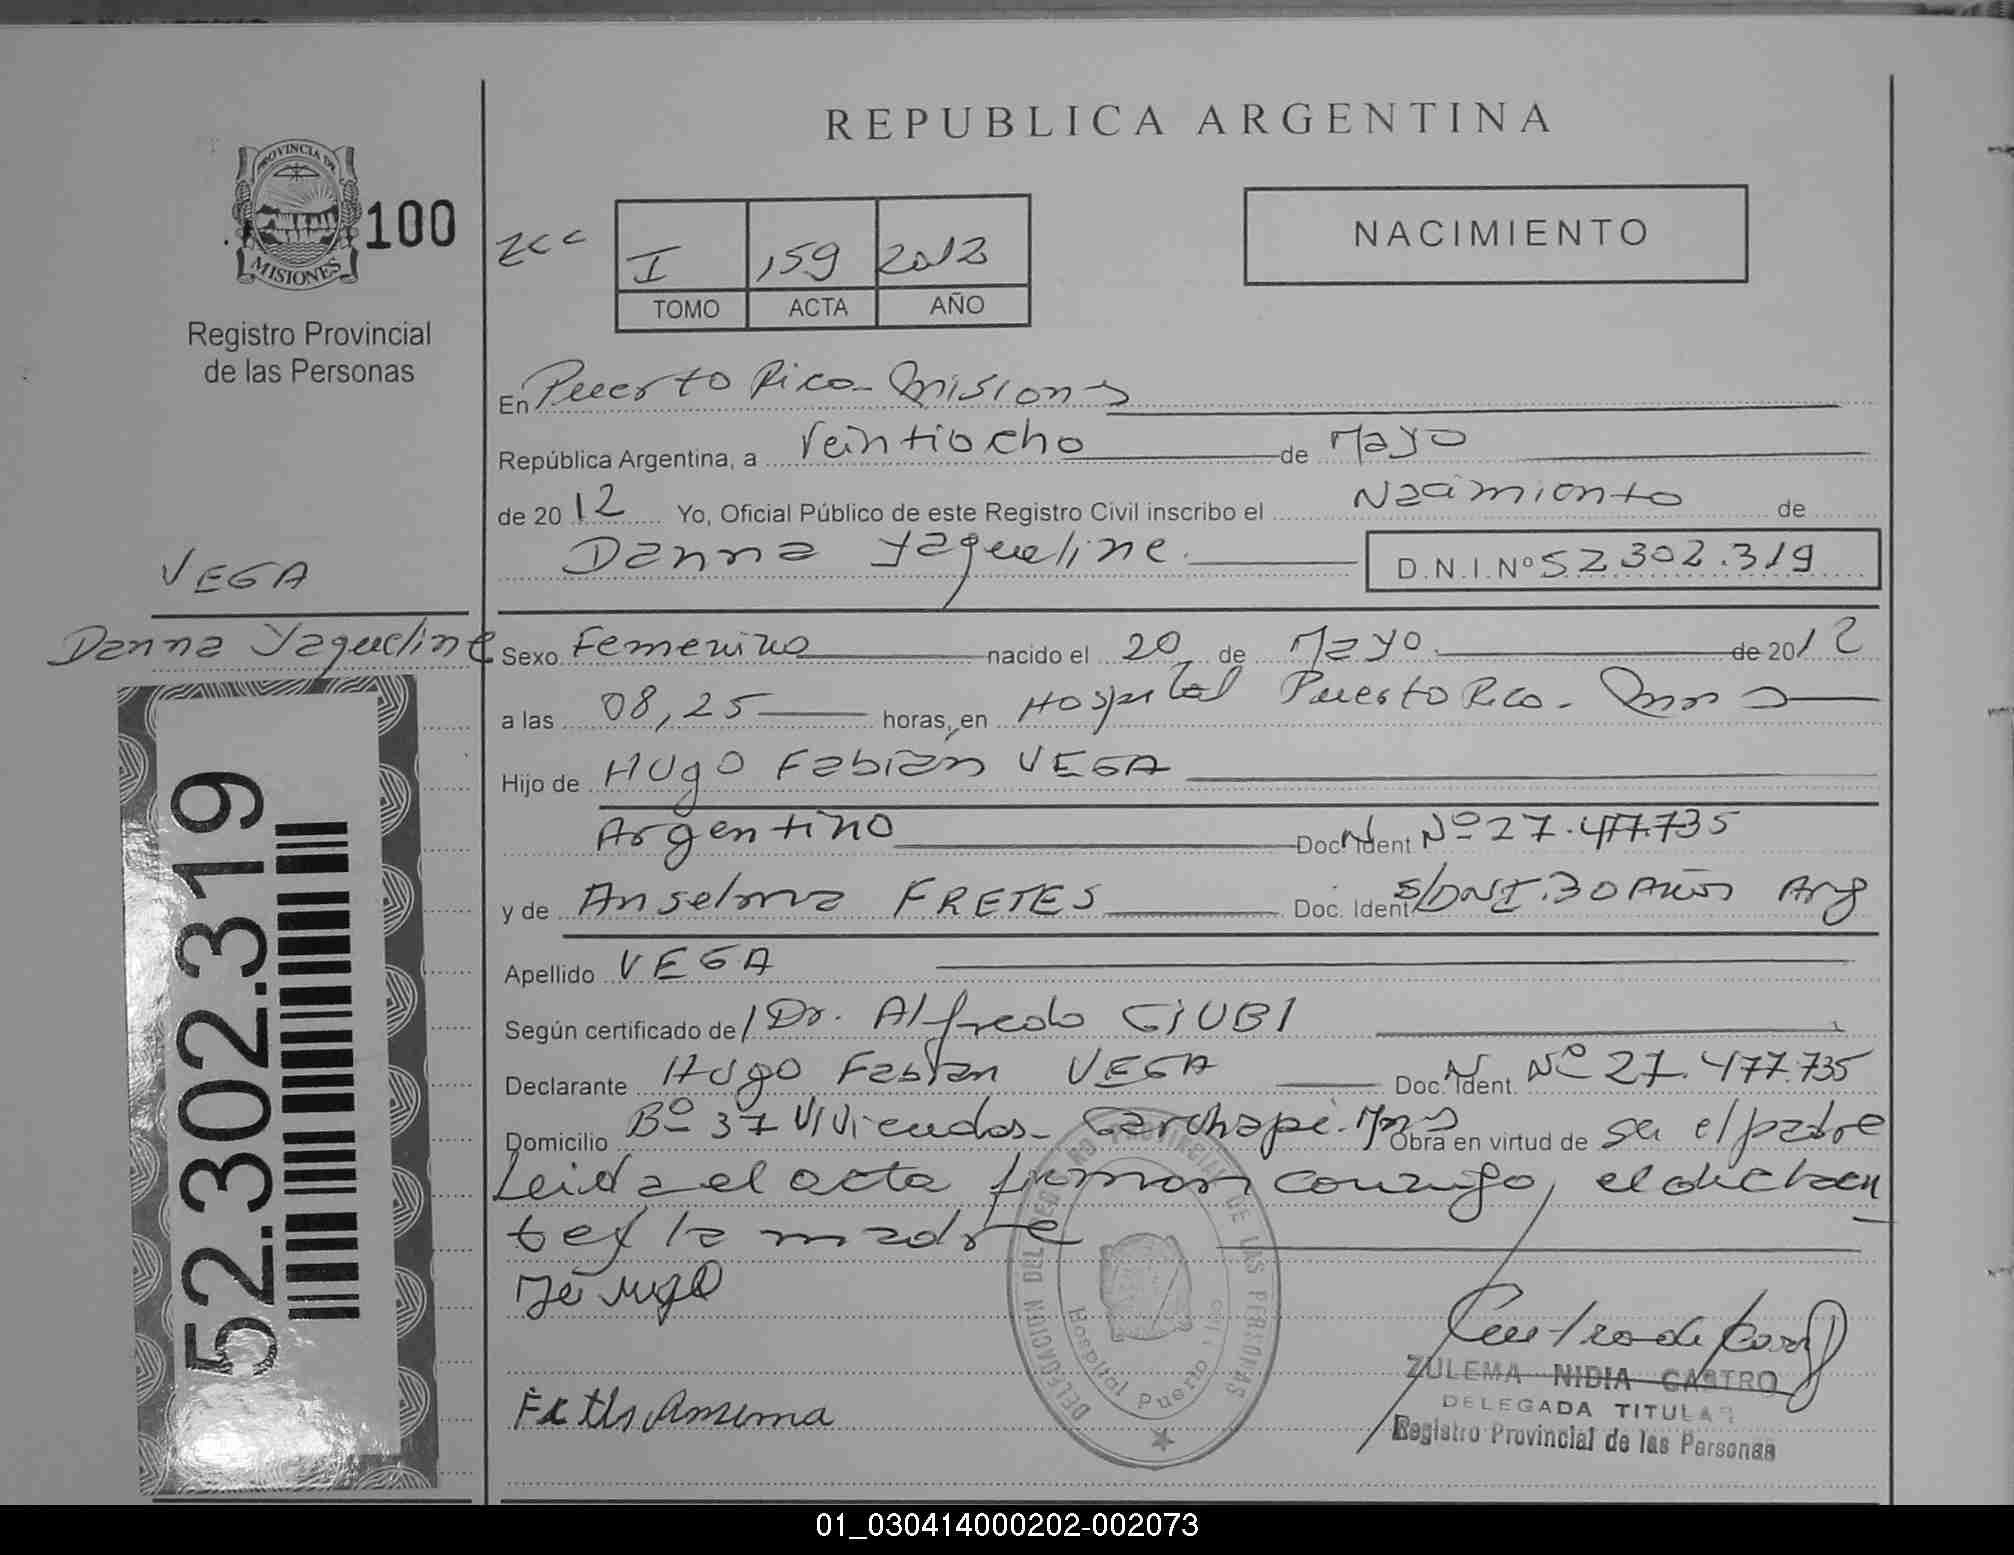 REPUBLICA ARGENTINA
PROVINCIA DE
MISIONES
100
Registro Provincial
de las Personas
I 159 2012
TOMO ACTA AÑO
NACIMIENTO
En Puerto Rico - Misiones
República Argentina, a Veintiocho de Mayo
de 2012 Yo, Oficial Público de este Registro Civil inscribo el Nacimiento de
Danna Yaqueline D.N.I.Nº 52.302.319
VEGA
Danna Yaqueline
Sexo Femenino nacido el 20 de Mayo de 2012
a las 08,25 horas, en Hospital Puerto Rico - Mnes
Hijo de Hugo Fabián VEGA
Argentino Doc. Ident Nº 27.477.735
y de Anselma FRETES Doc. Ident S/DNI. 30 Años Arg
Apellido VEGA
Según certificado de Dr. Alfredo GIUBI
Declarante Hugo Fabian VEGA Doc. Ident. Nº 27.477.735
Domicilio Bº 37 Viviendas - Garuhapé. Mnes Obra en virtud de ser el padre
Leida el acta firman conmigo, el declaran
te y la madre
52.302.319
DELEGACION DEL REGISTRO PROVINCIAL DE LAS PERSONAS
Hospital Puerto Rico
ZULEMA NIDIA CASTRO
DELEGADA TITULAR
Registro Provincial de las Personas
01_030414000202-002073